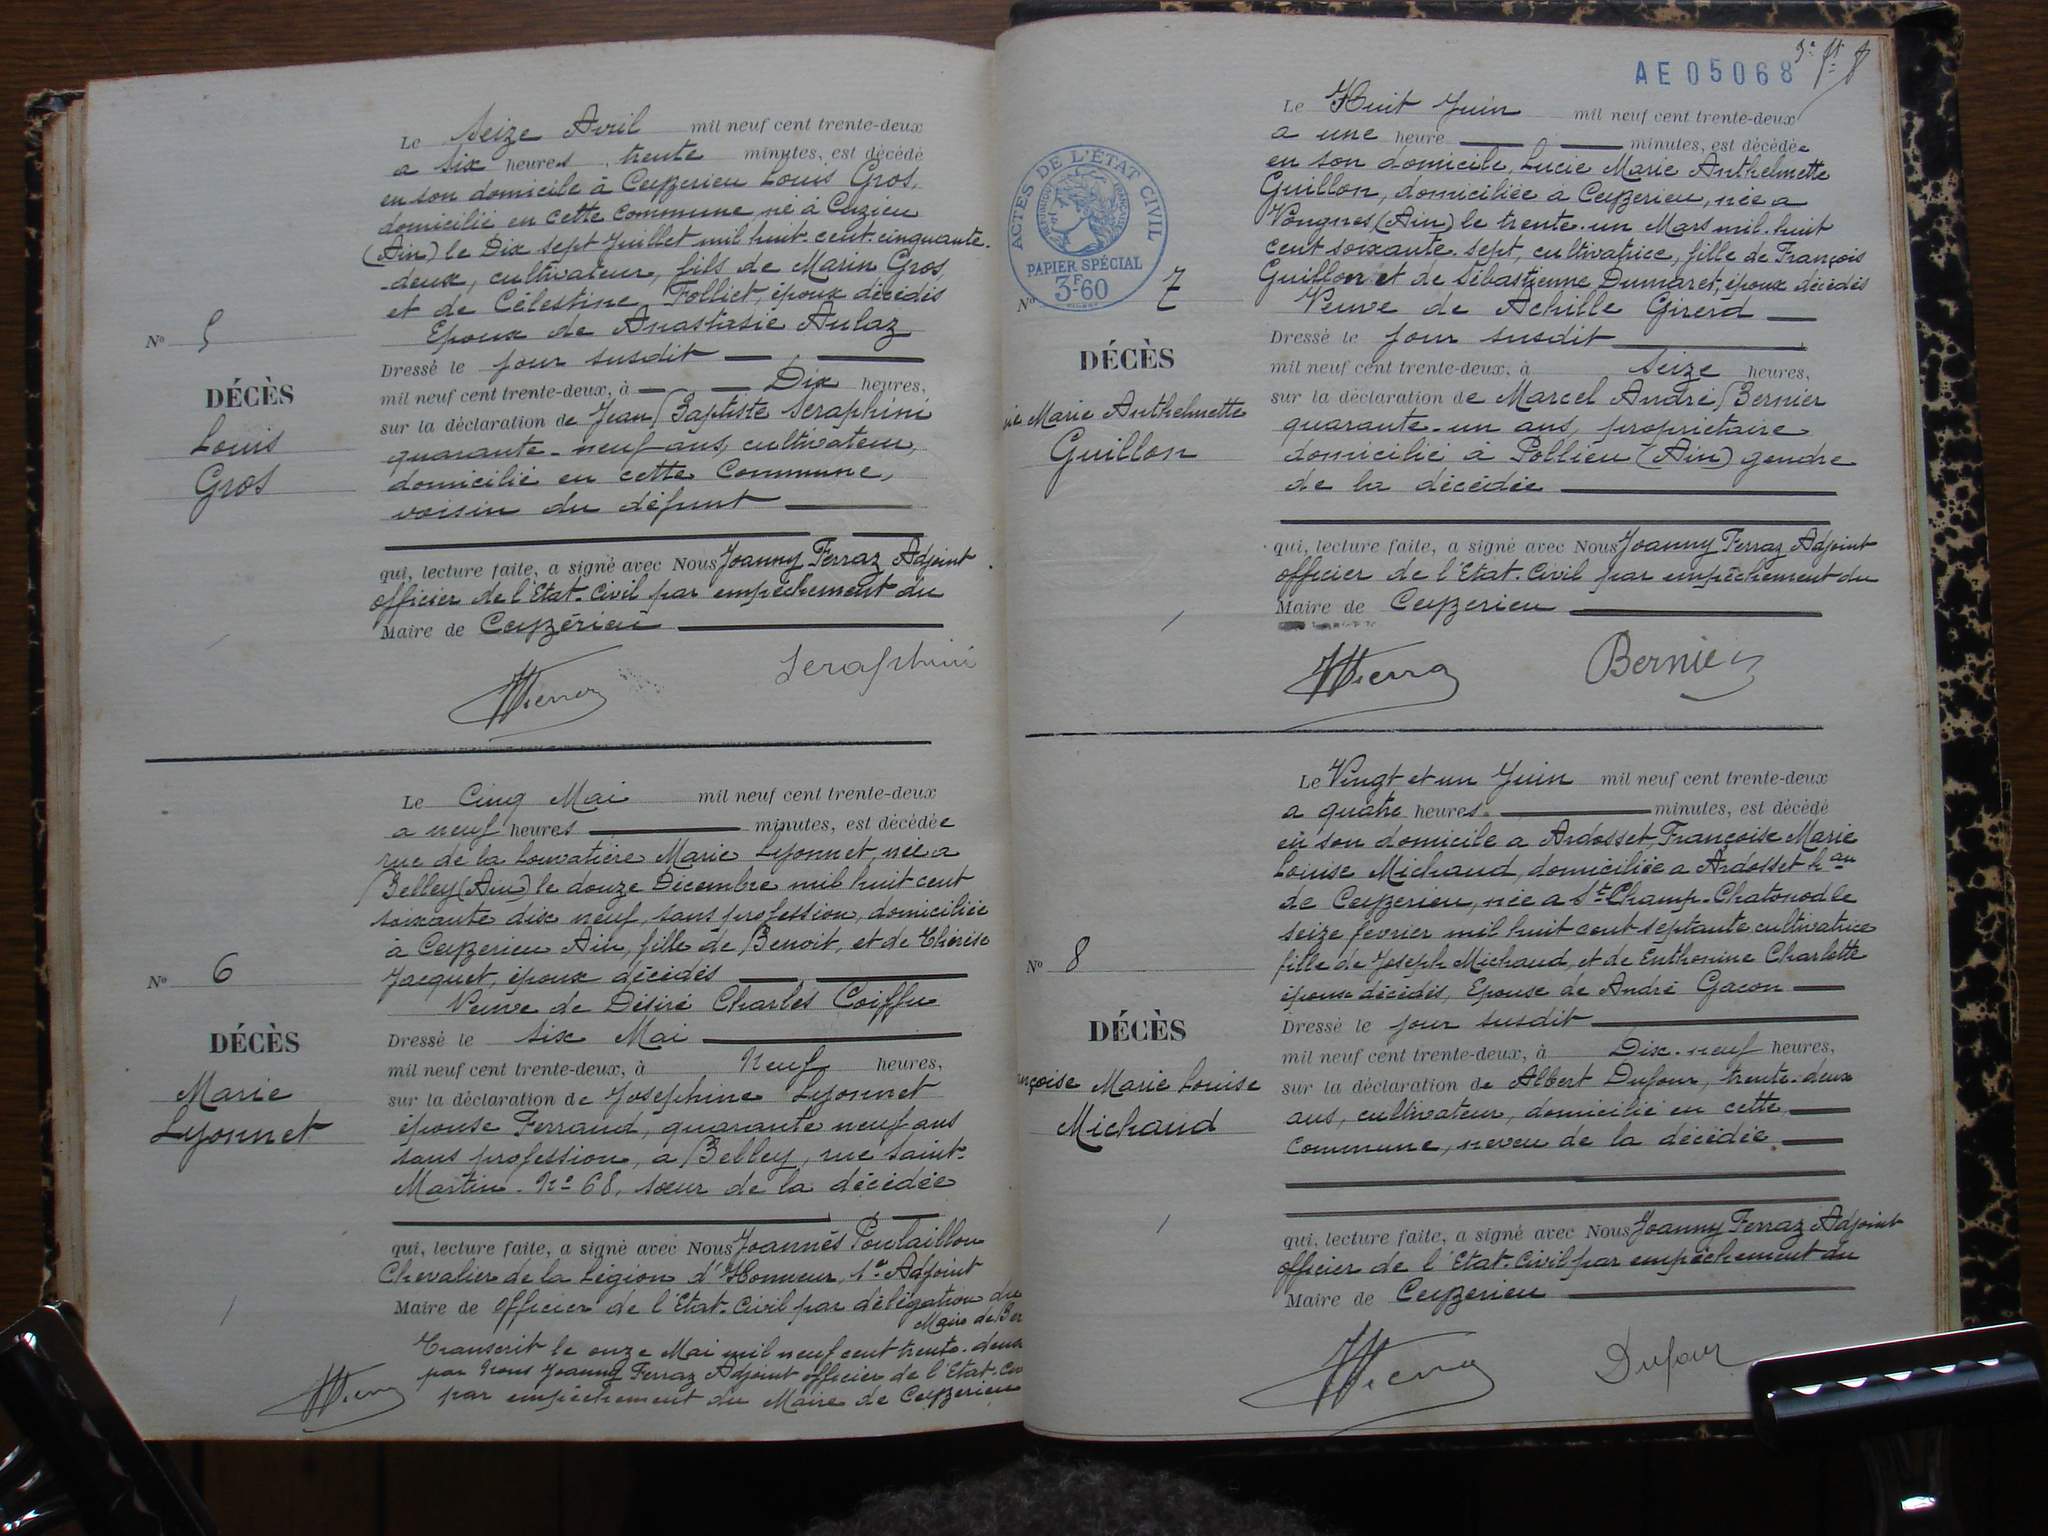 Le Seize Avril mil neuf cent trente-deux
a six heures trente minutes, est décédé
en son domicile à Ceyzerieu Louis Gros,
domicilié en cette commune né à Cuzieu
(Ain) le Dix sept Juillet mil huit-cent-cinquante-
deux, cultivateur, fils de Marin Gros,
et de Célestine Folliet, époux décédés
Epoux de Anastasie Aulaz
Dressé le jour susdit
mil neuf cent trente-deux, à Dix heures,
sur la déclaration de Jean Baptiste Seraphini
quarante-neuf ans, cultivateur,
domicilié en cette Commune,
voisin du défunt
qui, lecture faite, a signé avec Nous Joanny Ferraz Adjoint
officier de l'Etat-Civil par empêchement du
Maire de Ceyzérieu
Seraphini
No 5
DÉCÈS
Louis
Gros
Le Cinq Mai mil neuf cent trente-deux
a neuf heures minutes, est décédée
rue de la Louvatière Marie Lyonnet, née a
Belley (Ain) le douze Décembre mil huit cent
soixante dix neuf, sans profession, domiciliée
à Ceyzerieu Ain, fille de Benoit, et de Thérèse
Jacquet, époux décédés
Veuve de Désiré Charles Coiffu
Dressé le six Mai
mil neuf cent trente-deux, à Neuf heures,
sur la déclaration de Josephine Lyonnet
épouse Ferraud, quarante neuf ans
sans profession, a Belley, rue Saint-
Martin No 68, sœur de la décédée
qui, lecture faite, a signé avec Nous Joannès Poulaillon
Chevalier de la Légion d'Honneur, 1er Adjoint
Maire de officier de l'Etat-Civil par délégation du
Maire de
Transcrit le onze Mai mil neuf cent trente-deux
par Nous Joanny Ferraz Adjoint officier de l'Etat-
par empêchement du Maire de Ceyzerieu
No 6
DÉCÈS
Marie
Lyonnet
AE 05068
Le Huit Juin mil neuf cent trente-deux
a une heure minutes, est décédée
en son domicile, Lucie Marie Anthelmette
Guillon, domiciliée à Ceyzerieu, née a
Vongnes (Ain) le trente-un Mars mil-huit
cent soixante-sept, cultivatrice, fille de François
Guillon et de Sébastienne Dumaret, époux décédés
Veuve de Achille Girerd
Dressé le jour susdit
mil neuf cent trente-deux, à Seize heures,
sur la déclaration de Marcel André Bernier
quarante-un ans, propriétaire
domicilié à Pollieu (Ain) gendre
de la décédée
qui, lecture faite, a signé avec Nous Joanny Ferraz Adjoint
officier de l'Etat-Civil par empêchement du
Maire de Ceyzerieu
Bernier
ACTES DE L'ÉTAT CIVIL
RÉPUBLIQUE FRANÇAISE
PAPIER SPÉCIAL
3F60
No 7
DÉCÈS
Marie Anthelmette
Guillon
Le Vingt et un Juin mil neuf cent trente-deux
a quatre heures minutes, est décédé
en son domicile a Ardosset, Françoise Marie
Louise Michaud, domiciliée a Ardosset hau
de Ceyzerieu, née a St-Champ-Chatonod le
seize février mil huit cent septante cultivatrice
fille de Joseph Michaud, et de Enthonine Charlotte
époux décédés, Epouse de André Gacon
Dressé le jour susdit
mil neuf cent trente-deux, à Dix-neuf heures,
sur la déclaration de Albert Dufour, trente-deux
ans, cultivateur, domicilié en cette
Commune, neveu de la décédée
qui, lecture faite, a signé avec Nous Joanny Ferraz Adjoint
officier de l'Etat-Civil par empêchement du
Maire de Ceyzerieu
Dufour
No 8
DÉCÈS
Marie Louise
Michaud